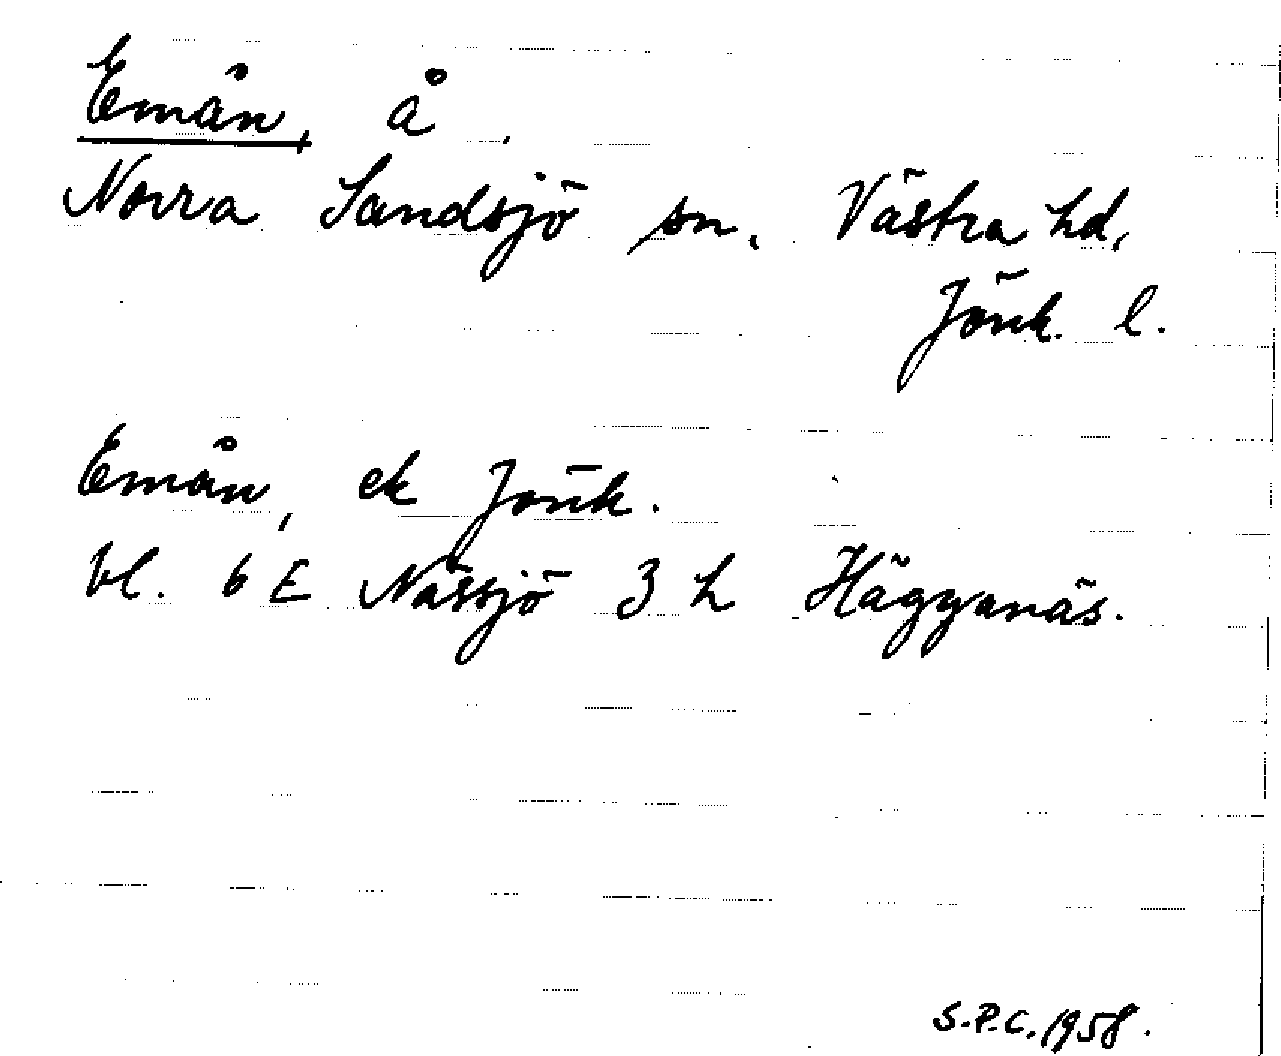 Emån, å.
Norra Sandsjö sn. Västra hd,
Jönk. l.
Emån, ek Jönk.
bl. 6 E Nässjö 3 h Hägganäs.
S.P.C. 1958.